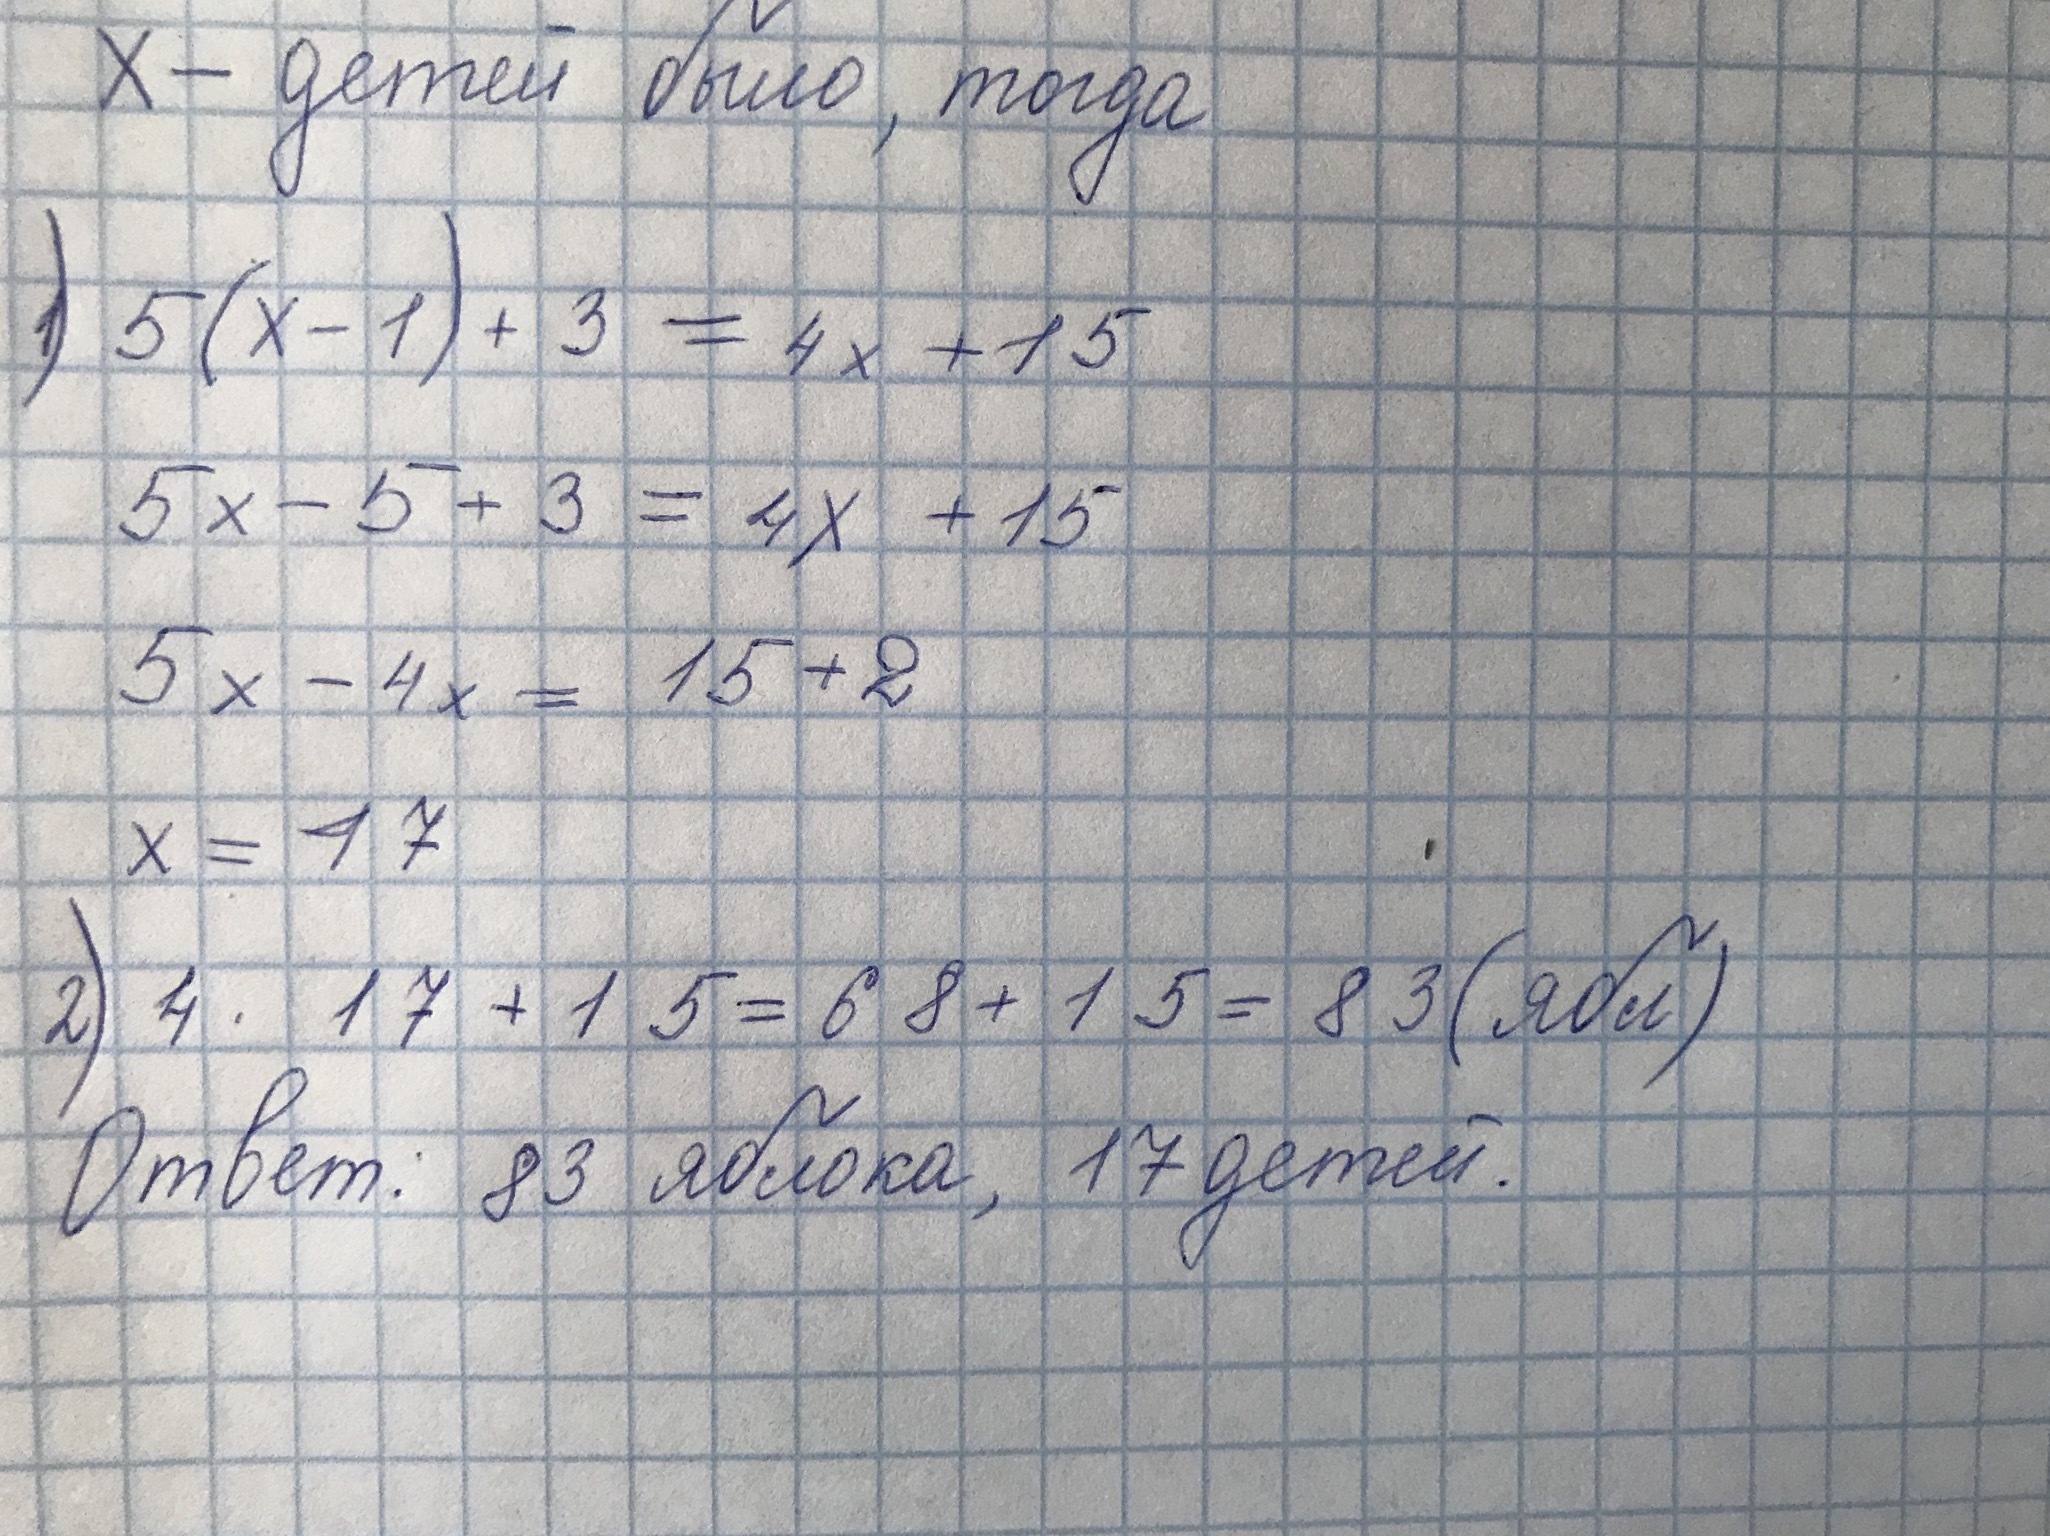 X - детей было, тогда
1) 5(x-1)+3 = 4x+15
5x-5+3 = 4x+15
5x-4x = 15+2
x = 17
2) 4 · 17+15=68+15=83(ябл)
Ответ: 83 яблока, 17 детей.